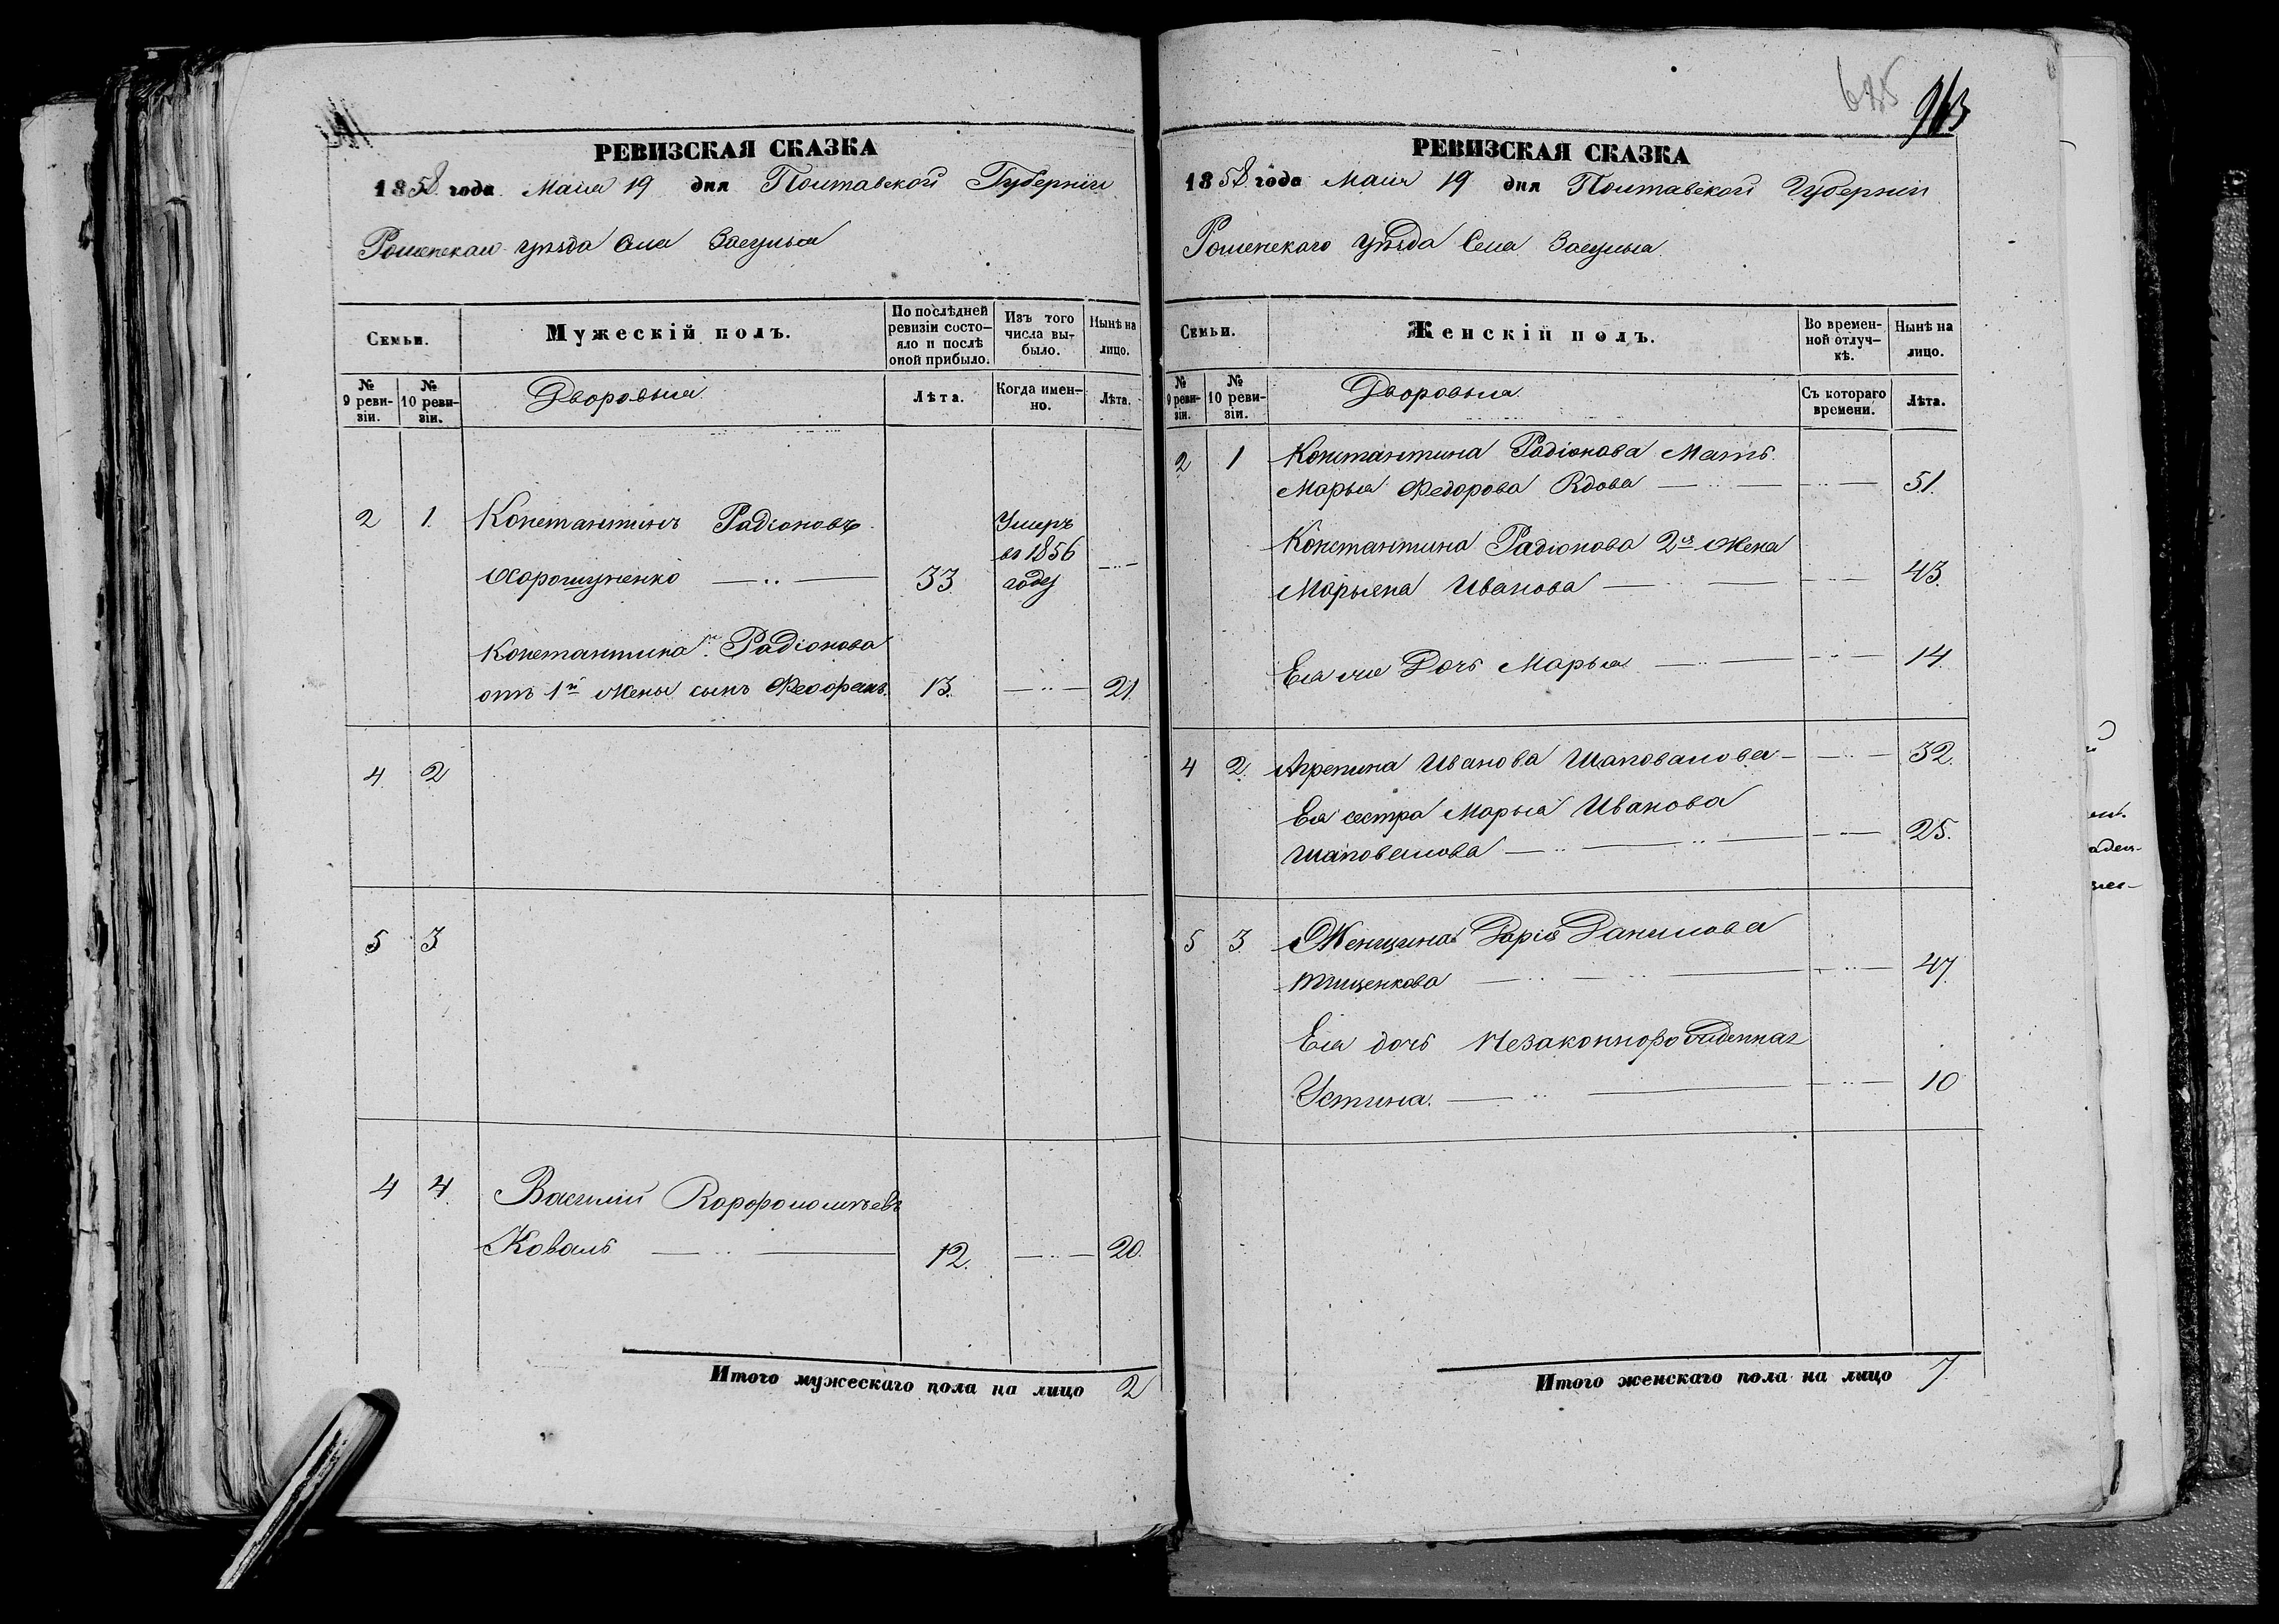 РЕВИЗСКАЯ СКАЗКА
1858 года Маія 19 дня Полтавской Губерніи
Роменскаго уѣзда Села Засулья
Семьи.
Мужескій полъ.
По послѣдней ревизіи состояло и послѣ оной прибыло.
Изъ того числа выбыло.
Нынѣ на лицо.
№ 9 ревизіи.
№ 10 ревизіи.
Дворовыя.
Лѣта.
Когда именно.
Лѣта.
2 1. Константинъ Радіоновъ Умеръ
въ 1856
Хорошуненко 33. году
Константина Радіонова
отъ 1й Жены сынъ 13. 21.
4. 2
5 3
4 4. Василій
Коваль 12. 20.
Итого мужескаго пола на лицо 2
685
РЕВИЗСКАЯ СКАЗКА
1858 года Маія 19 дня Полтавской Губерніи
Роменскаго уѣзда Села Засулья
Семьи.
Женскій полъ.
Во временной отлучкѣ.
Нынѣ на лицо.
№ 9 ревизіи.
№ 10 ревизіи.
Дворовыя
Съ котораго времени.
Лѣта.
2 1 Константина Радіонова Мать
Марья Федорова Вдова 51.
Константина Радіонова 2я Жена
Марьяна Иванова 43.
Ея же Дочь Марья 14.
4 2. Агрепина Иванова Шаповалова 32.
Ея сестра Марья Иванова
Шаповалова 25.
5 3. Женщина Дарія Данилова
Тищенкова 47.
Ея дочь Незаконнорожденная
Устина. 10
Итого женскаго пола на лицо 7.